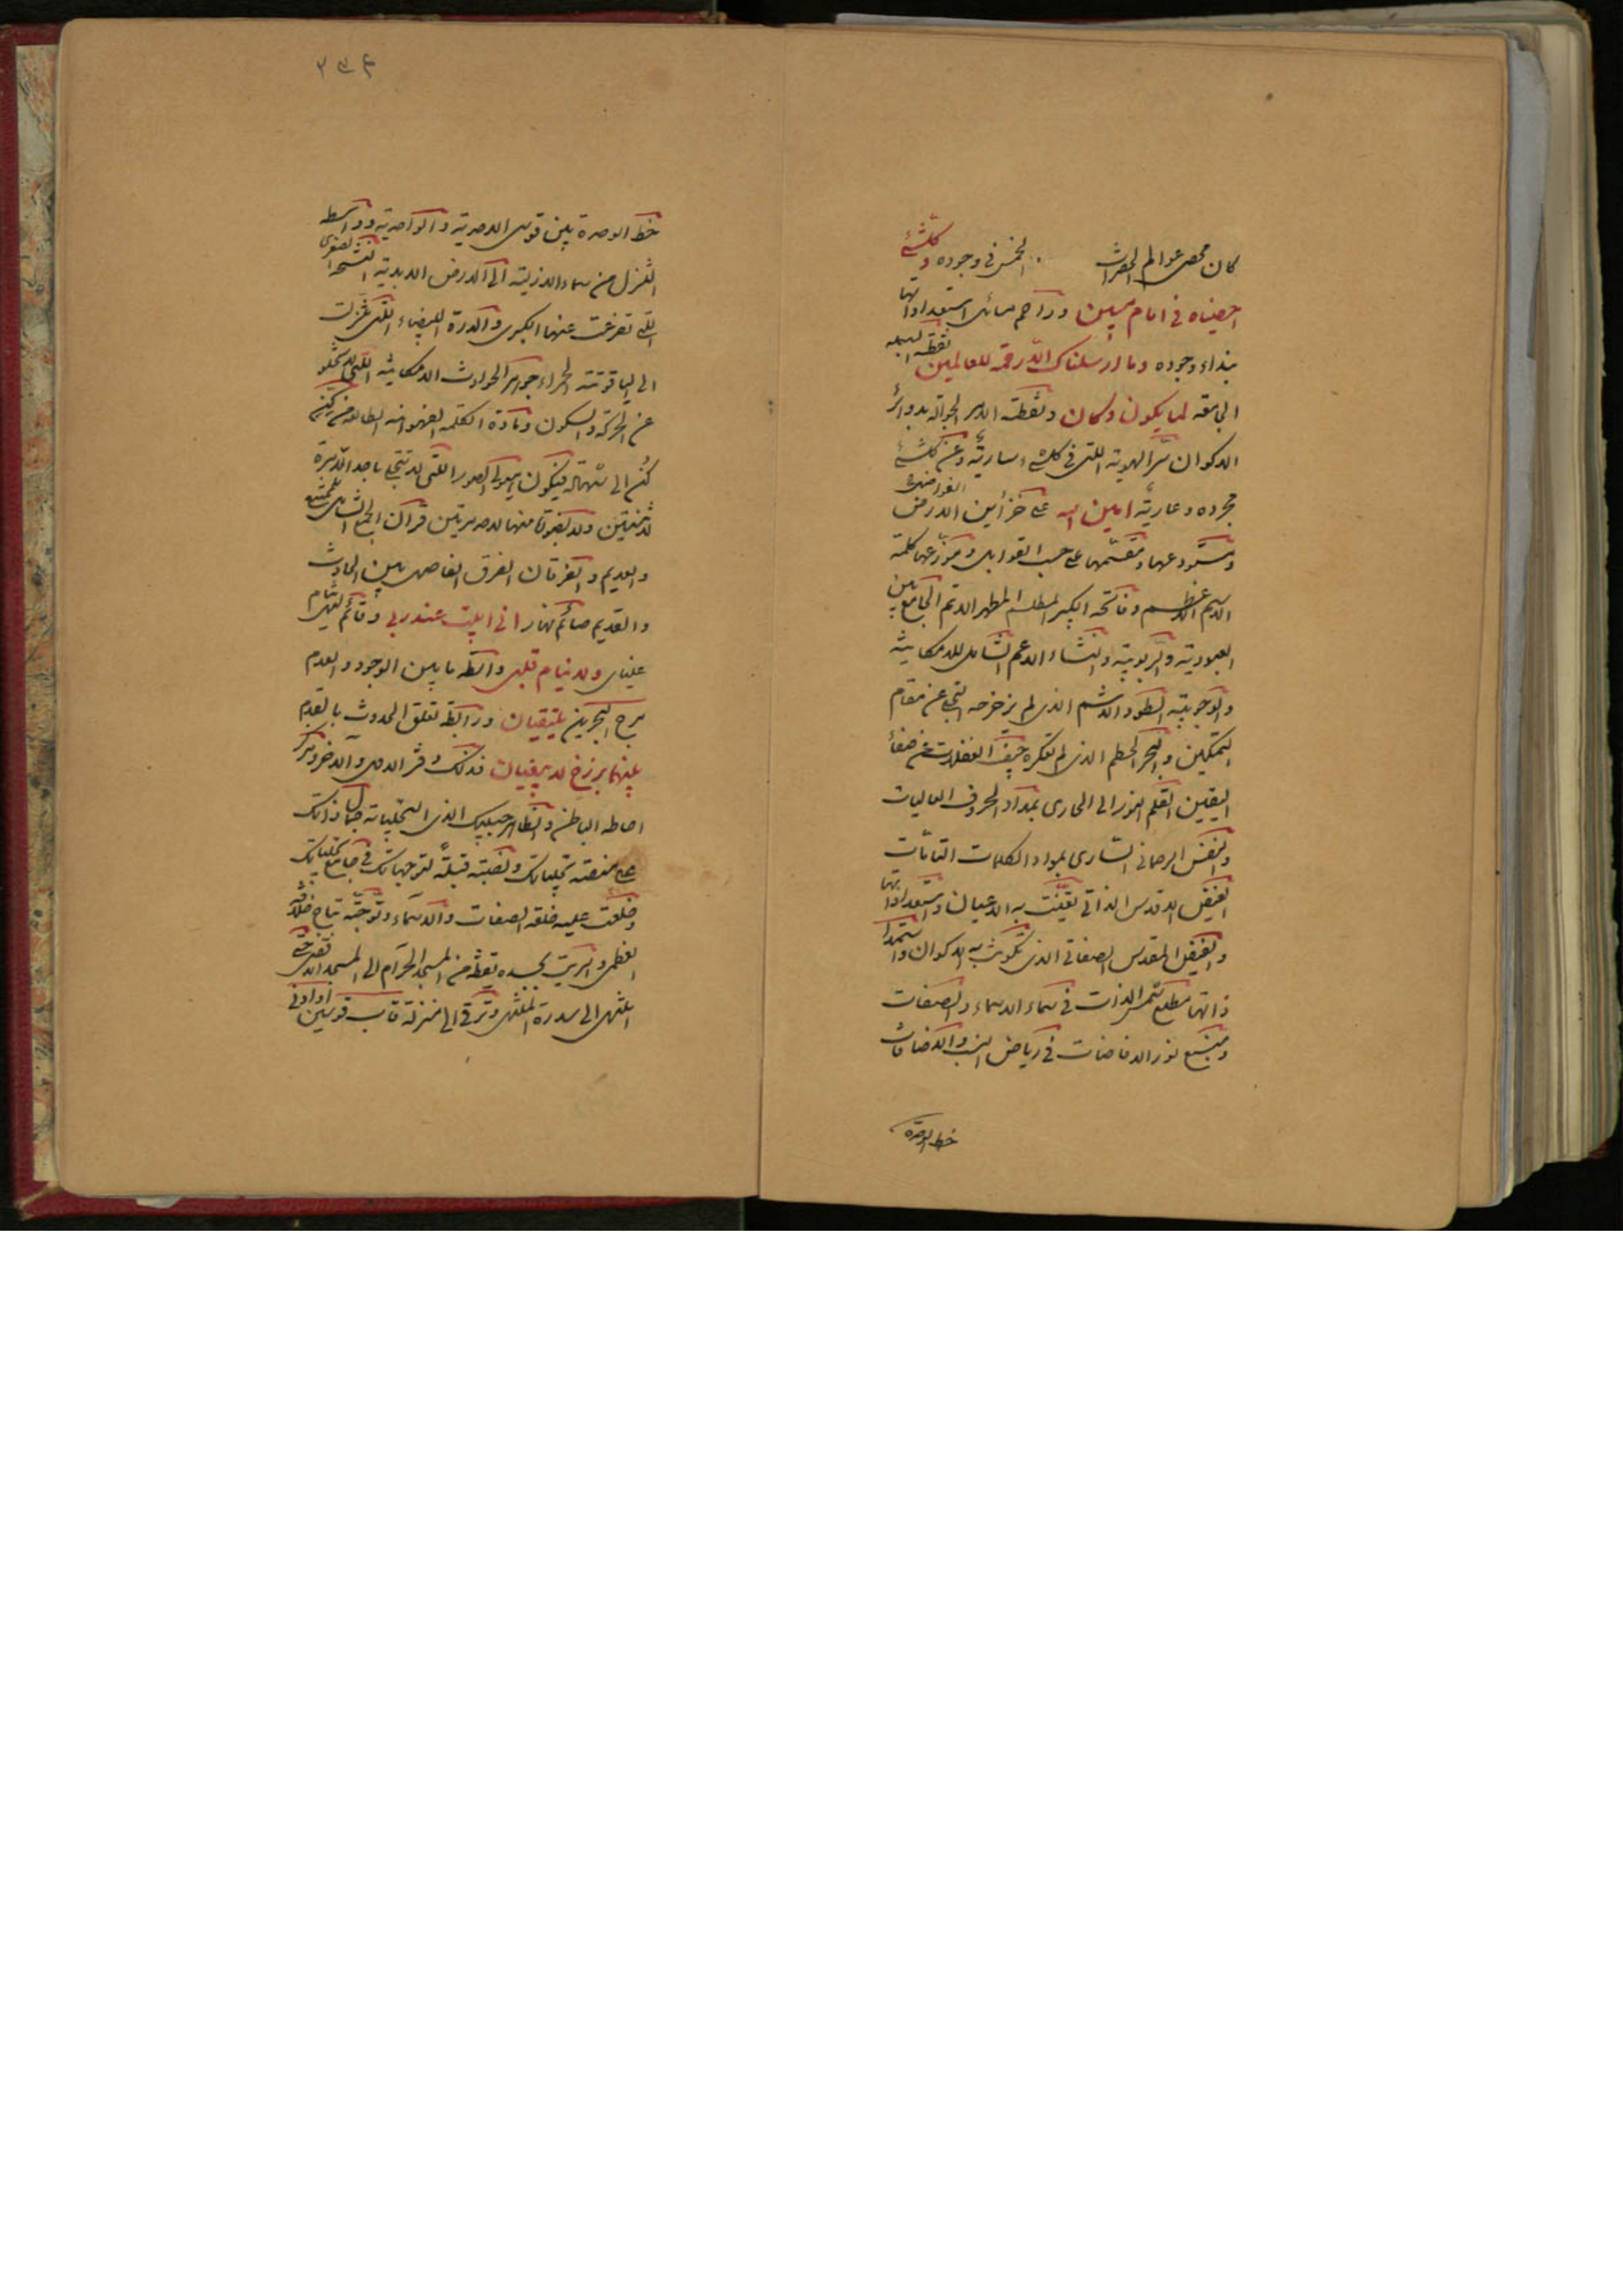 كان محصى عوالم الحضرات الخمس فى وجوده وكلشئ
احصيناه فى امام مبين وراحم سائلى استعداداتها
بنداء وجوده وما ارسلناك الا رحمة للعالمين نقطة البسملة
الجامعة لما يكون وكان ونقطة الامر الجوالة بدوائر
الاكوان سر الهوية اللتى فى كلشئ سارية وعن كلشئ
مجردة وعارية امين الله على خزائن الفواضل
ومستودعها ومقسمها على حسب القوابل وموزعها كلمة
الاسم الاعظم وفاتحة الكنز المطلسم المظهر الاتم الجامع بين
العبودية والربوبية والنشاء الاعم الشامل للامكانية
والوجوبية الطود الاشم الذى لم يزحزحه التجلى عن مقام
التمكين والبحر الخضم الذى لم تعكره جيف الغفلات عن صفاء
اليقين القلم النورانى الجارى بمداد الحروف العاليات
والنفس الرحمانى السارى بمواد الكلمات التامات
الفيض الاقدس الذاتى تعينت به الاعيان واستعداداتها
والفيض المقدس الصفاتى الذى تكونت به الاكوان واستمدا
ذاتها مطلع شمس الذات فى سماء الاسماء والصفات
ومنبع نور الافاضات فى رياض النسب والاضافات
خط الوحدة
٣٣٤
خط الوحدة بين قوسى الاحدية والواحدية وواسطة
التنزل من سماء الازلية الى الارض الابدية النسخة الصغرى
التى تفرعت عنها الكبرى والدرة البيضاء اللتى تنزلت
الى الياقوتة الحمراء جوهر الحوادث الامكانية اللتى لا تخلو
عن الحركة والسكون ومادة الكلمة الفهوانية الطالعة من كن
كن الى شهادة فيكون هيولى الصور اللتى لا تتجلى باحداها مرة
لاثنين ولا بصورة منها لاحد مرتين قرآن الجمع الشامل للممتنع
والعديم وفرقان الفرق الفاصل بين الحادث
والقديم صائم نهار انى ابيت عند ربى وقائم ليل تنام
عيناى ولا ينام قلبى واسطة ما بين الوجود والعدم
مرج البحرين يلتقيان ورابطة تعلق الحدوث بالقدم
بينهما برزخ لا يبغيان فذلكة دفتر الاول والاخر ومركز
احاطة الباطن والظاهر حبيبك الذى استجليت به جمال ذاتك
على منصة تجلياتك ونصبته قبلة لتوجهاتك فى جامع تجلياتك
وخلعت عليه خلعة الصفات والاسماء وتوجته بتاج خلافة
العظمى واسريت بجسده يقظة من المسجد الحرام الى المسجد الاقصى حتى
انتهى الى سدرة المنتهى وترقى الى منزلة قاب قوسين او ادنى